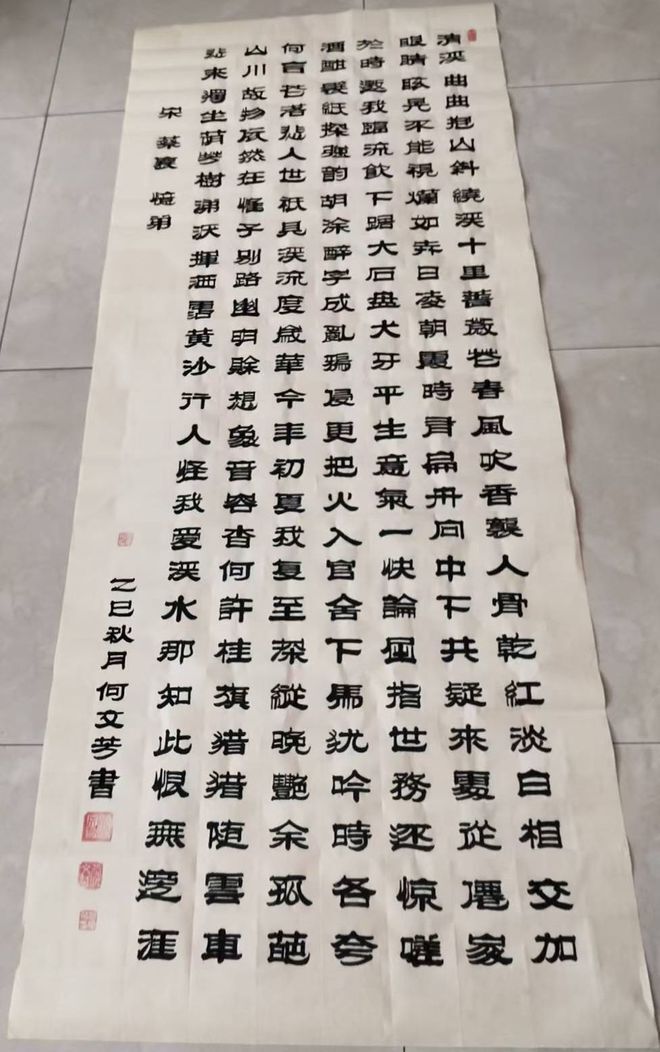 清溪曲曲抱山斜繞溪十里薔薇花春風吹香襲人骨乾紅淡白相交加
眼睛眩晃不能視爛如弄日凌朝霞時有扁舟向中下共疑來處從僊家
於時邀我臨流飲下踞大石盤犬牙平生意氣一快論屈指世務還惊嗟
酒酣裂紙探強韵胡涂醉字成亂鴉侵更把火入官舍下馬沈吟時各夸
何言花落歸人世祇見溪流度歲華今年初夏我复至深縱晚艷余孤葩
山川故物依然在惟子別路幽明賒想象音容杳何許桂旗猎猎随雲車
歸來獨坐荫岑樹涕沃揮洒霑黄沙行人怪我愛溪水那知此恨無邊涯
宋 蔡襄 憶弟
乙巳秋月何文芳書